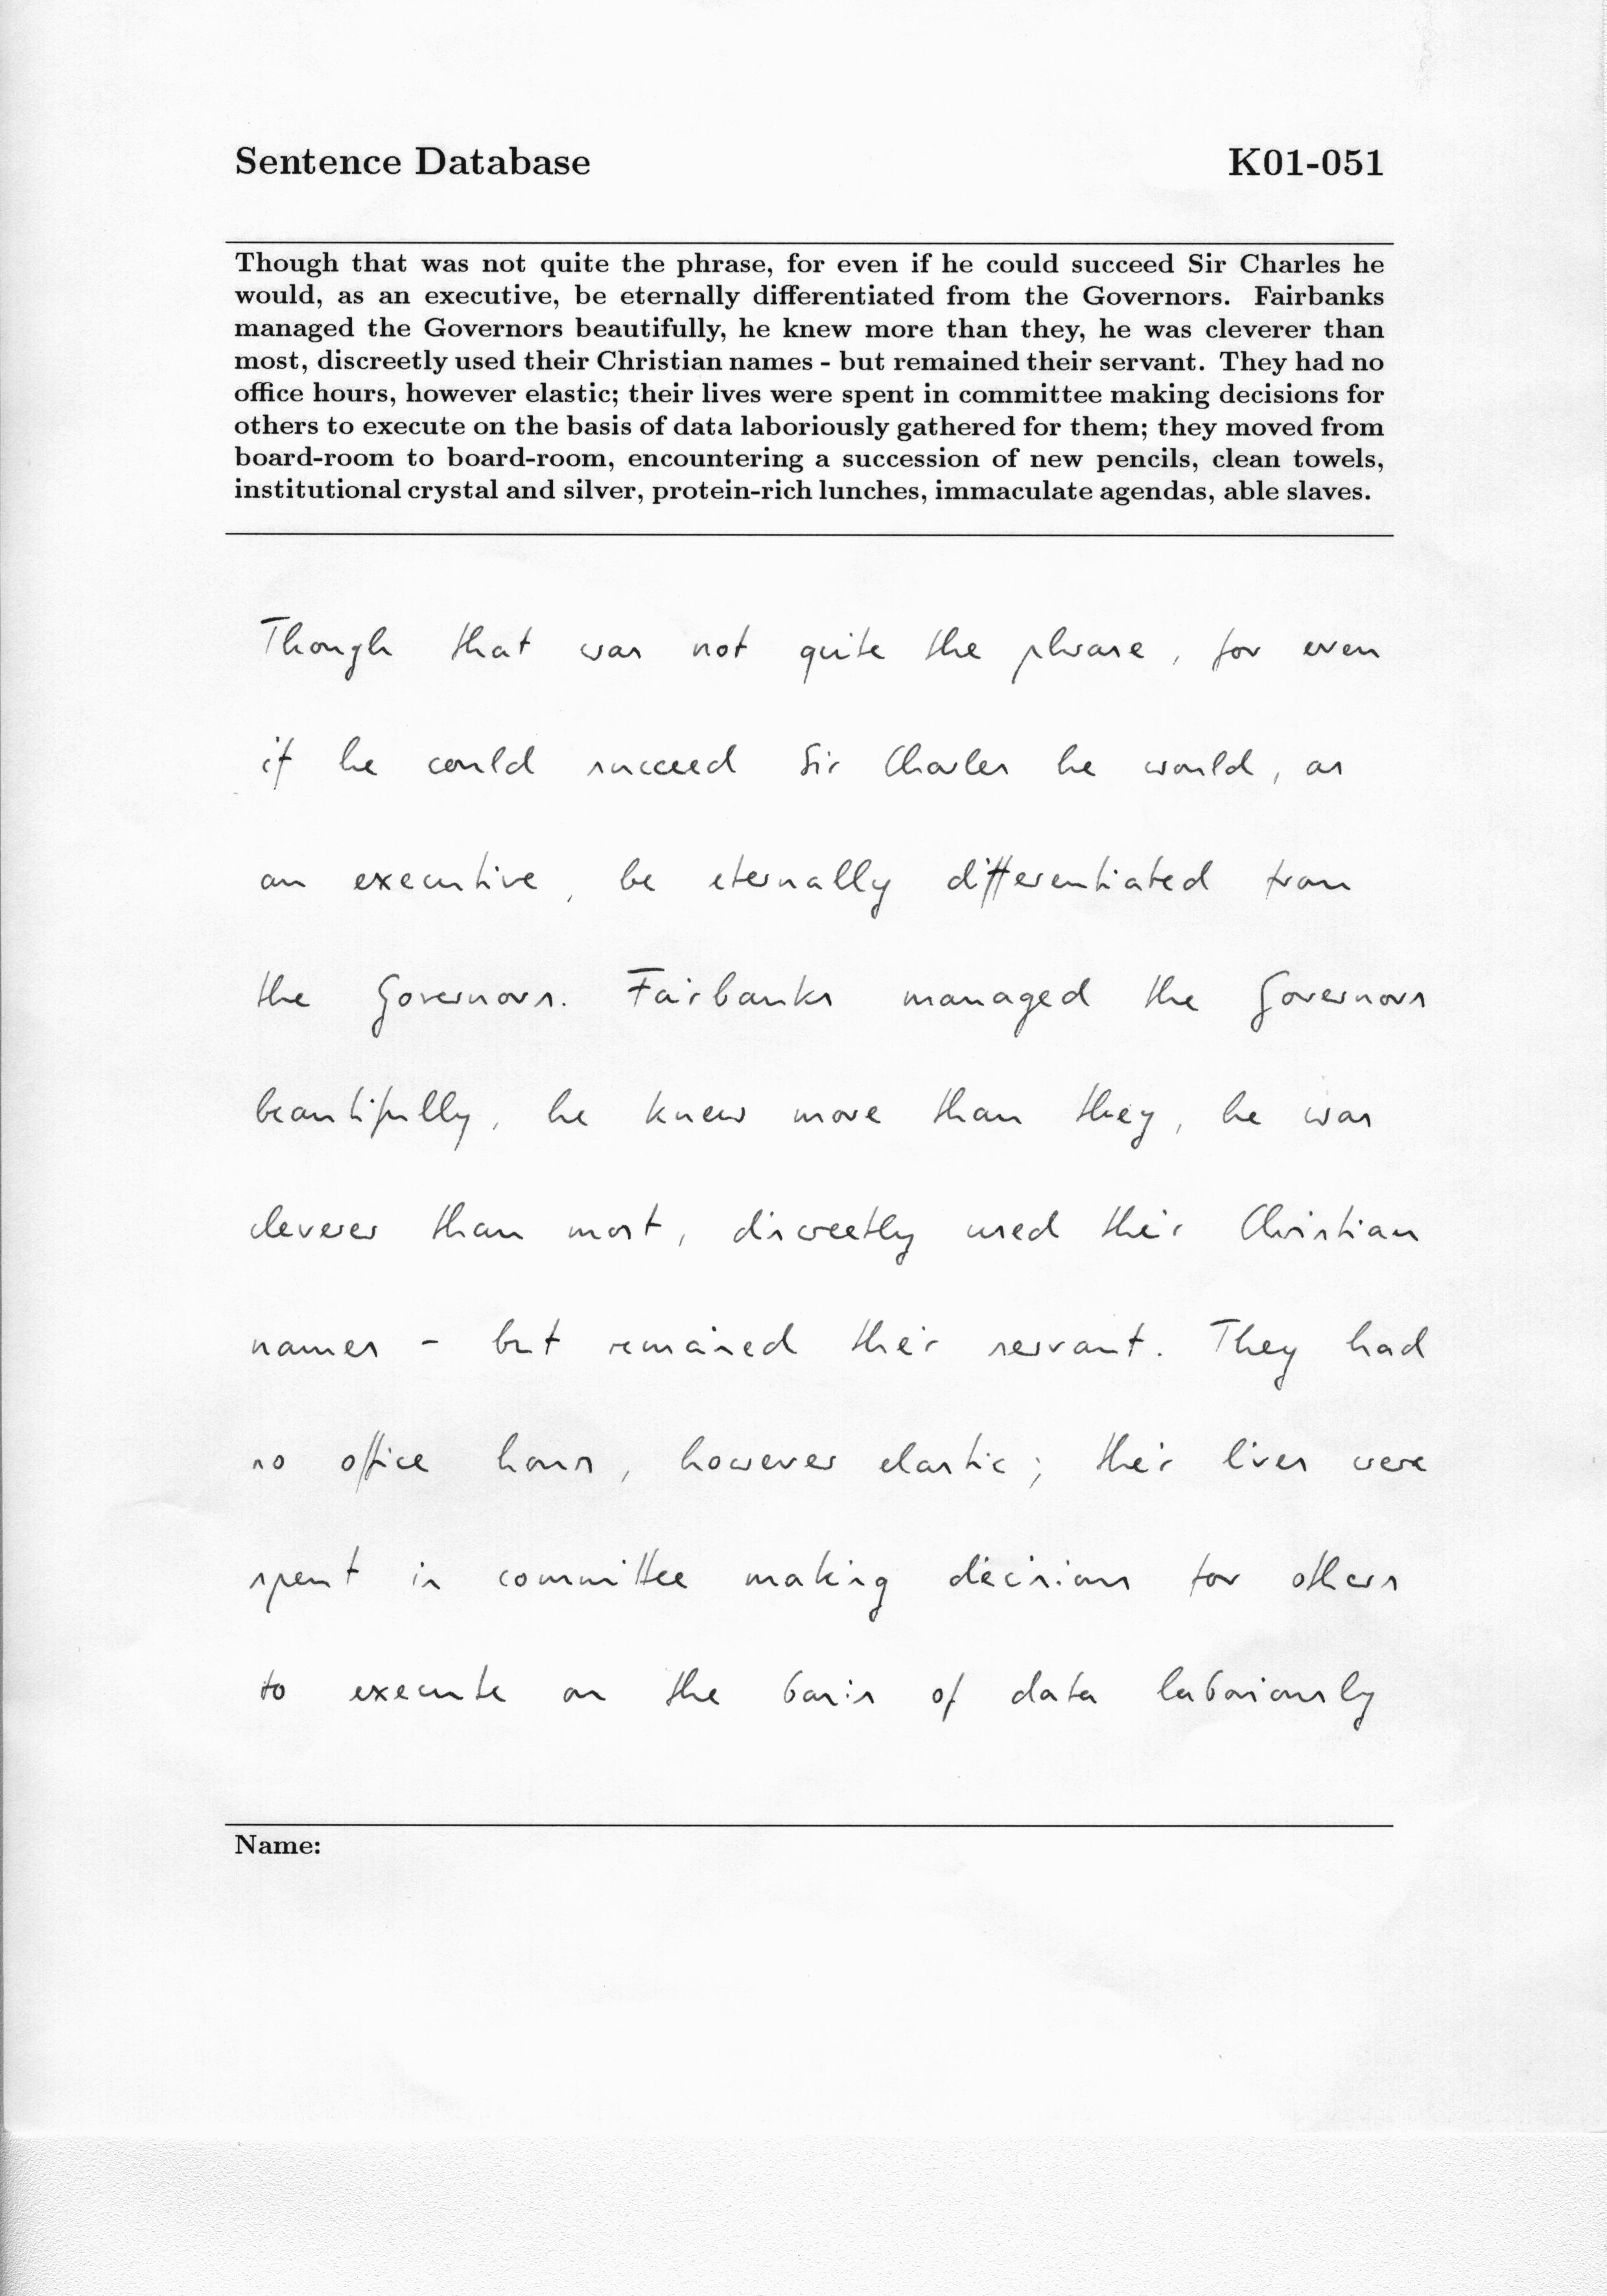 Sentence Database K01-051
Though that was not quite the phrase, for even if he could succeed Sir Charles he
would, as an executive, be eternally differentiated from the Governors. Fairbanks
managed the Governors beautifully, he knew more than they, he was cleverer than
most, discreetly used their Christian names - but remained their servant. They had no
office hours, however elastic; their lives were spent in committee making decisions for
others to execute on the basis of data laboriously gathered for them; they moved from
board-room to board-room, encountering a succession of new pencils, clean towels,
institutional crystal and silver, protein-rich lunches, immaculate agendas, able slaves.
Though that was not quite the phrase, for even
if he could succeed Sir Charles he would, as
an executive, be eternally differentiated from
the Governors. Fairbanks managed the Governors
beautifully, he knew more than they, he was
cleverer than most, discreetly used their Christian
names - but remained their servant. They had
no office hours, however elastic; their lives were
spent in committee making decisions for others
to execute on the basis of data laboriously
Name: